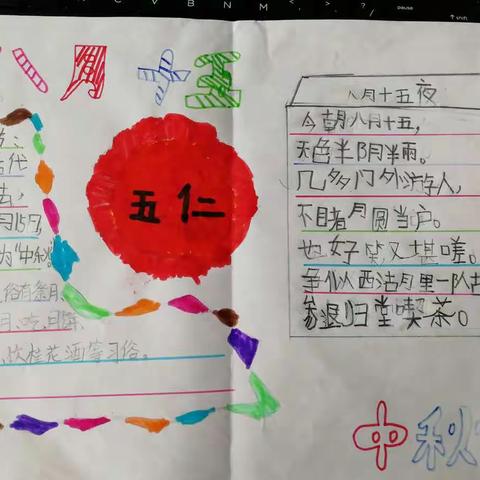 八月十五
古代
月15,
为"中秋
俗有祭月、
月、吃月饼、
饮桂花酒等习俗。
五仁
八月十五夜
今朝八月十五,
天色半阴半雨。
几多门外游人,
不睹月圆当户。
也好笑又堪嗟。
争似西沽月里一队古
参退归堂喫茶。
中秋
pause
shift